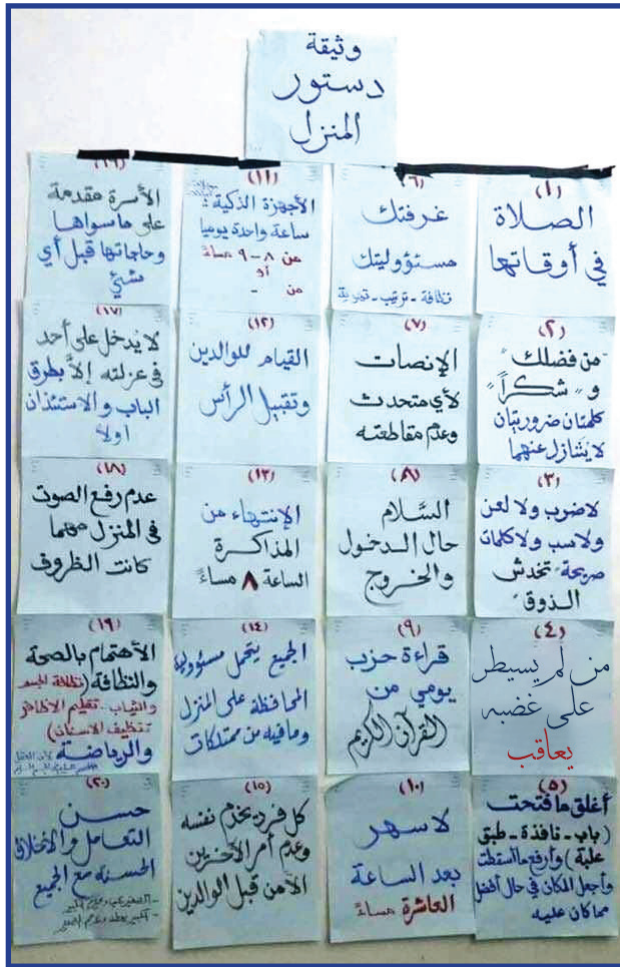 وثيقة
دستور
المنزل
(١)
الصلاة
في أوقاتها
(٢)
"من فضلك"
و "شكراً"
كلمتان ضروريتان
لا يتنازل عنهما
(٣)
لا ضرب ولا لعن
ولا سب ولا كلمات
صريحة "تخدش
الذوق"
(٤)
من لم يسيطر
على غضبه
يعاقب
(٥)
أغلق ما فتحت
(باب - نافذة - طبق
علبة) وأرفع ما أسقطت
وأجعل المكان في حال أفضل
مما كان عليه
(٦)
غرفتك
مسئووليتك
نظافة - ترتيب -
(٧)
الإنصات
لأي متحدث
وعدم مقاطعته
(٨)
السَّلام
حال الدخول
والخروج
(٩)
قراءة حزب
يومي من
القرآن الكريم
(١٠)
لا سهر
بعد الساعة
العاشرة مساءً
(١١)
الأجهزة الذكية:
ساعة واحدة يوميا
من ٨ - ٩ مساءً
أو
من -
(١٢)
القيام للوالدين
وتقبيل الرأس
(١٣)
الإنتهاء من
المذاكرة
الساعة ٨ مساءً
(١٤)
الجميع يتحمل مسئوولية
المحافظة على المنزل
وما فيه من ممتلكات
(١٥)
كل فرد يخدم نفسه
وعدم أمر الآخرين
الأمن قبل الوالدين
(١٦)
الأسرة مقدمة
على ما سواها
وحاجاتها قبل أي
شيئ
(١٧)
لا يدخل على أحد
في عزلته إلاَّ بطرق
الباب والاستئذان
أولا
(١٨)
عدم رفع الصوت
في المنزل مهما
كانت الظروف
(١٩)
الأهتمام بالصحة
والنظافة (نظافة الجسد
والثياب - تقليم الأظافر
تنظيف الاسنان)
والرياضة لأن العقل
(٢٠)
حسن
التعامل والأخلاق
الحسنة مع الجميع